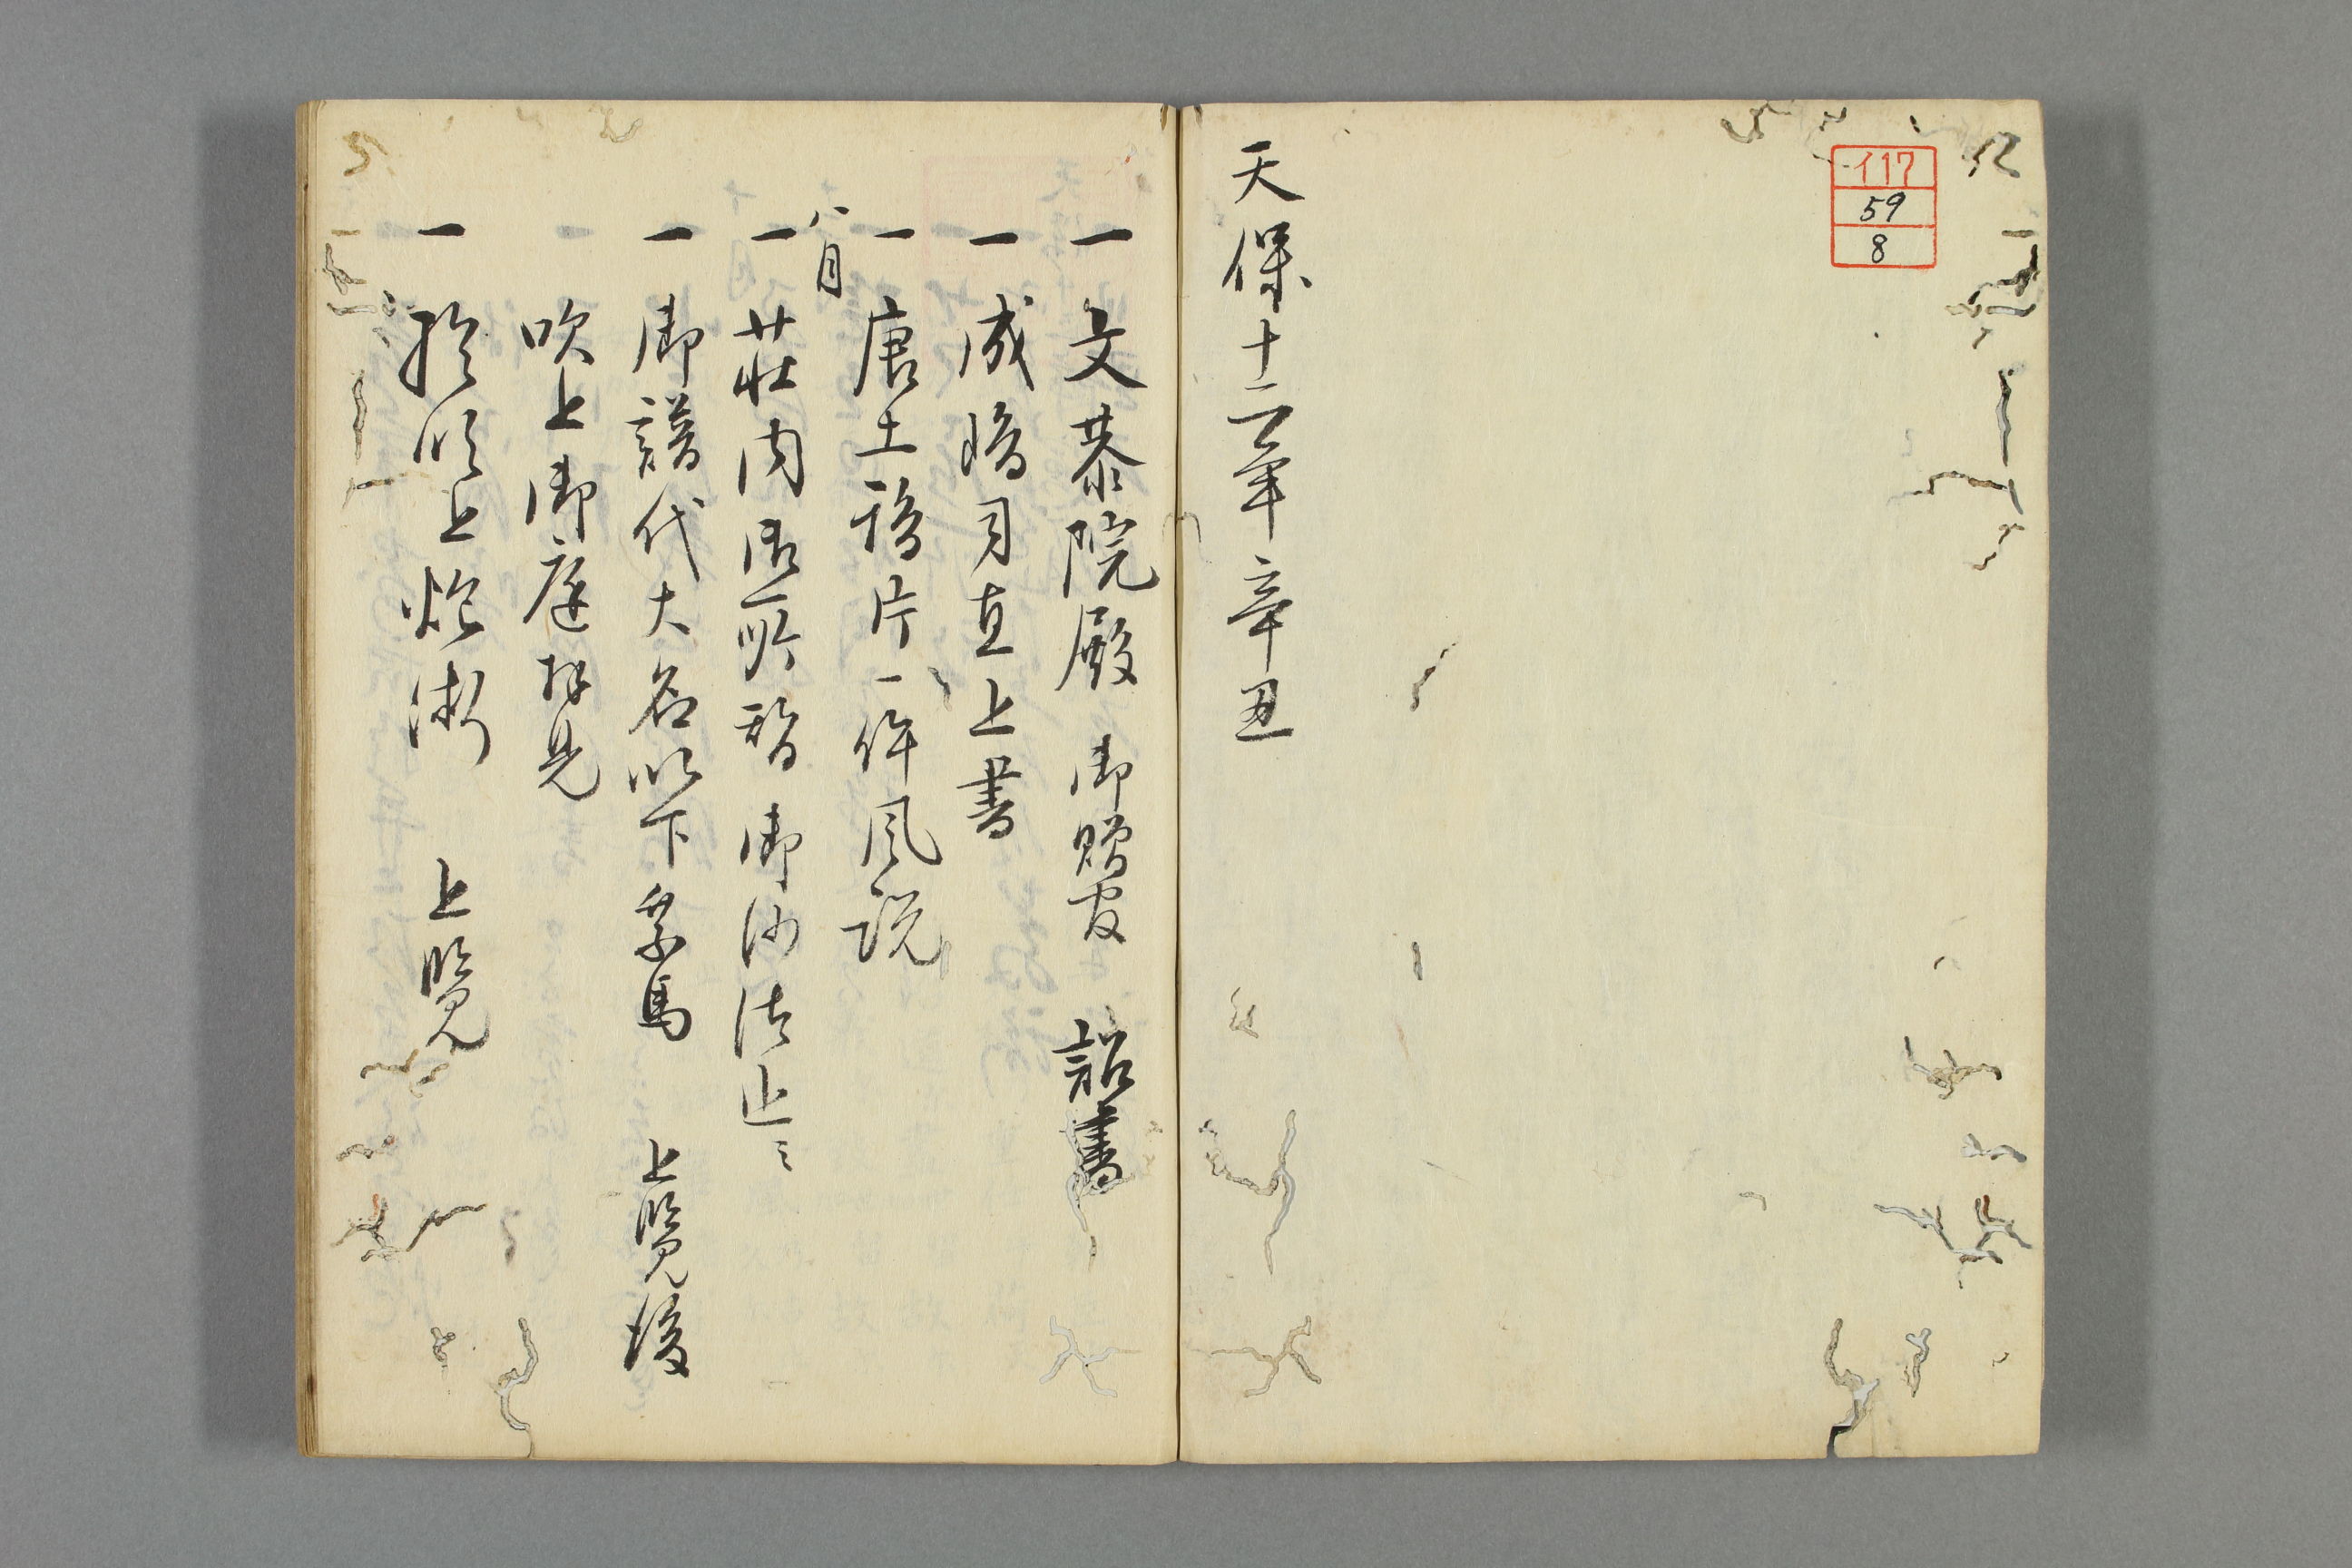 イ17
59
8
天保十二年辛丑
一文恭院殿 御贈官 詔書
一成嶋司直上書
一唐土鴉片一件風説
八月
一荘内所替御沙汰止ミ
一御譜代大名以下乗馬 上覧後
吹上御庭拝見
一於吹上炮術 上覧